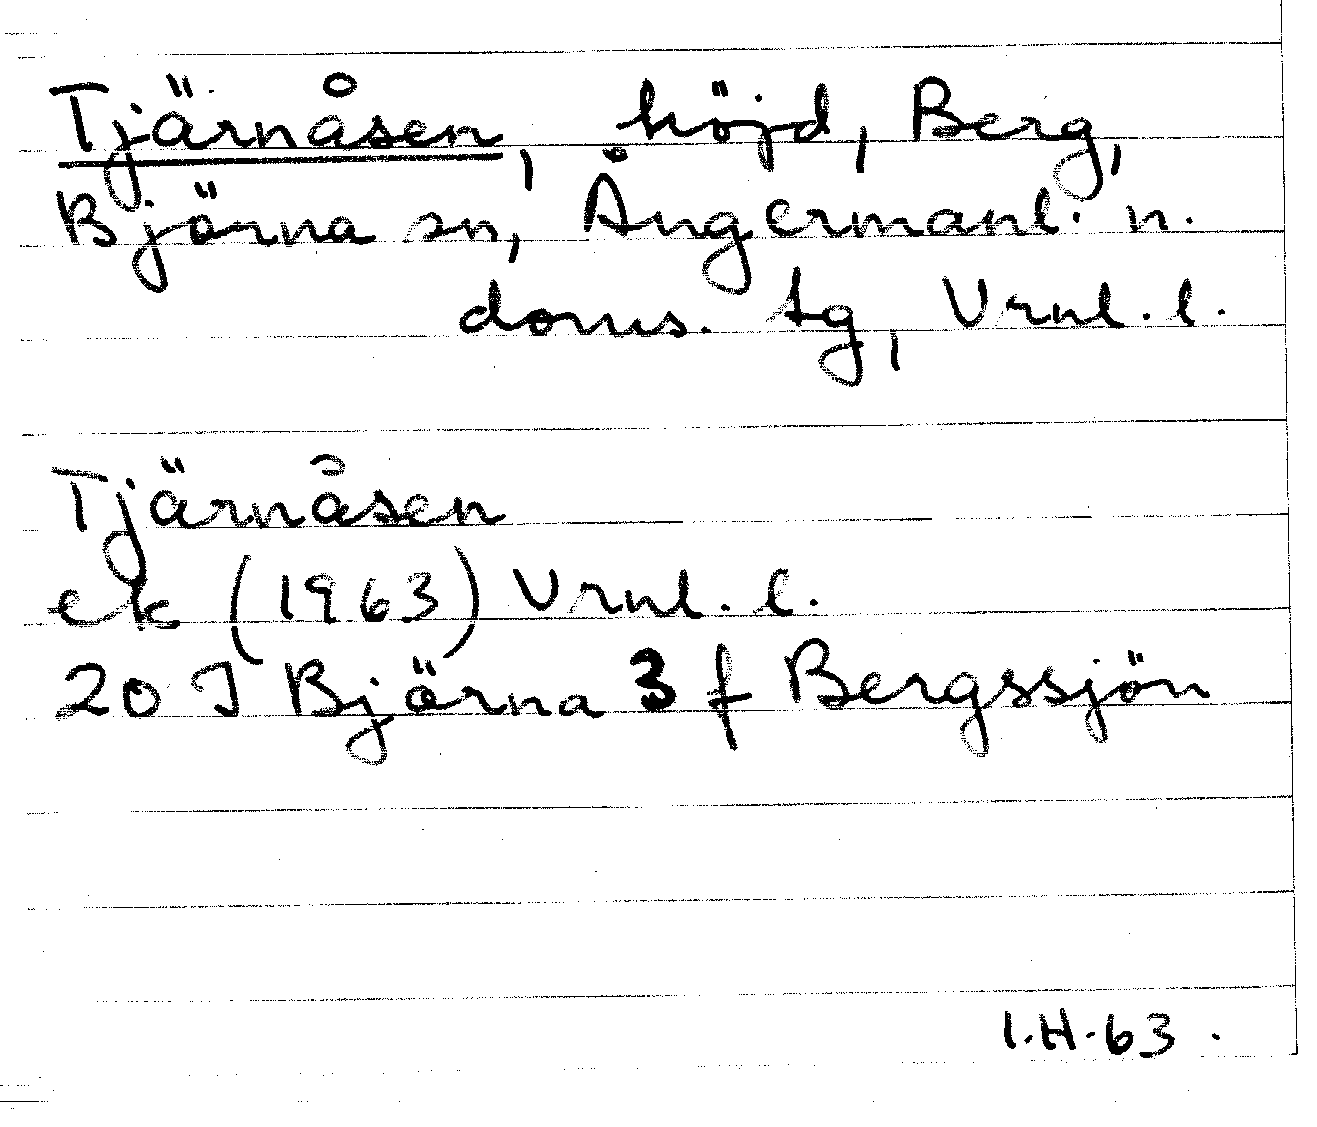 Tjärnåsen, höjd, Berg,
Bjärna sn, Ångermanl. n.
doms. tg, Vrnl. l.
Tjärnåsen
ek (1963) Vrnl. l.
20 J Björna 3 f Bergssjön
I.H.63.